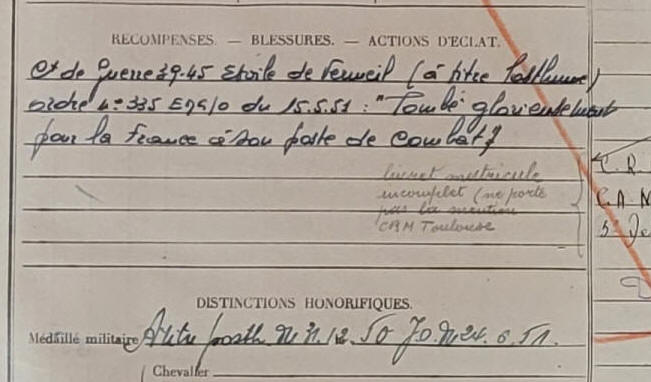 RÉCOMPENSES. — BLESSURES. — ACTIONS D'ÉCLAT.
Cx de Guerre 39-45 Etoile de Vermeil (à titre Posthume)
ordre n° 335 du 15.5.51 : "Tombé glorieusement
pour la France à son poste de combat"
livret matricule
incomplet (ne porte
pas la mention
CRM Toulouse
C.R.
C.A.N
5° De
DISTINCTIONS HONORIFIQUES.
Médaillé militaire A titre posth. 12.50 J.O. 24.6.51.
Chevalier